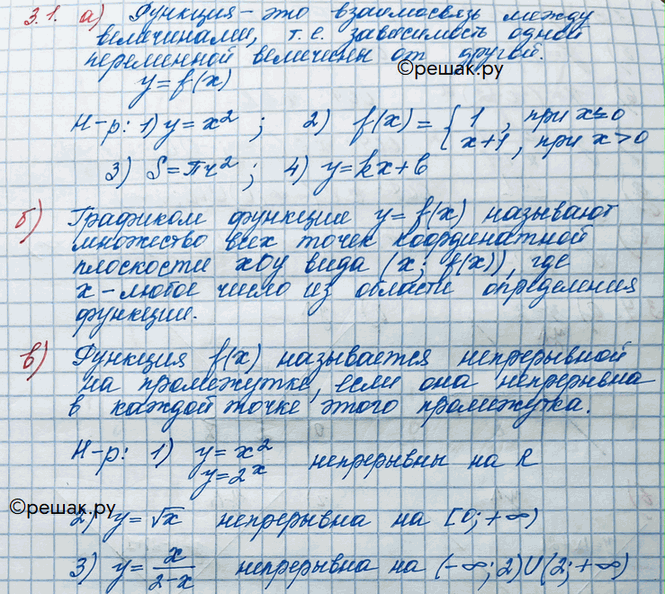 3.1. а) Функция - это взаимосвязь между
величинами, т.е. зависимость одной
переменной величины от другой.
©решак.ру
y = f(x)
Н-р: 1) y = x² ; 2) f(x) = { 1 , при x ≤ 0
x+1 , при x > 0
3) S = πr² ; 4) y = kx + b
б) Графиком функции y = f(x) называют
множество всех точек координатной
плоскости xOy вида (x; f(x)), где
x - любое число из области определения
функции.
в) Функция f(x) называется непрерывной
на промежутке, если она непрерывна
в каждой точке этого промежутка.
Н-р: 1) y = x²
y = 2ˣ непрерывны на R
©решак.ру
2) y = √x непрерывна на [0; +∞)
3) y = x/(2-x) непрерывна на (-∞; 2)∪(2; +∞)